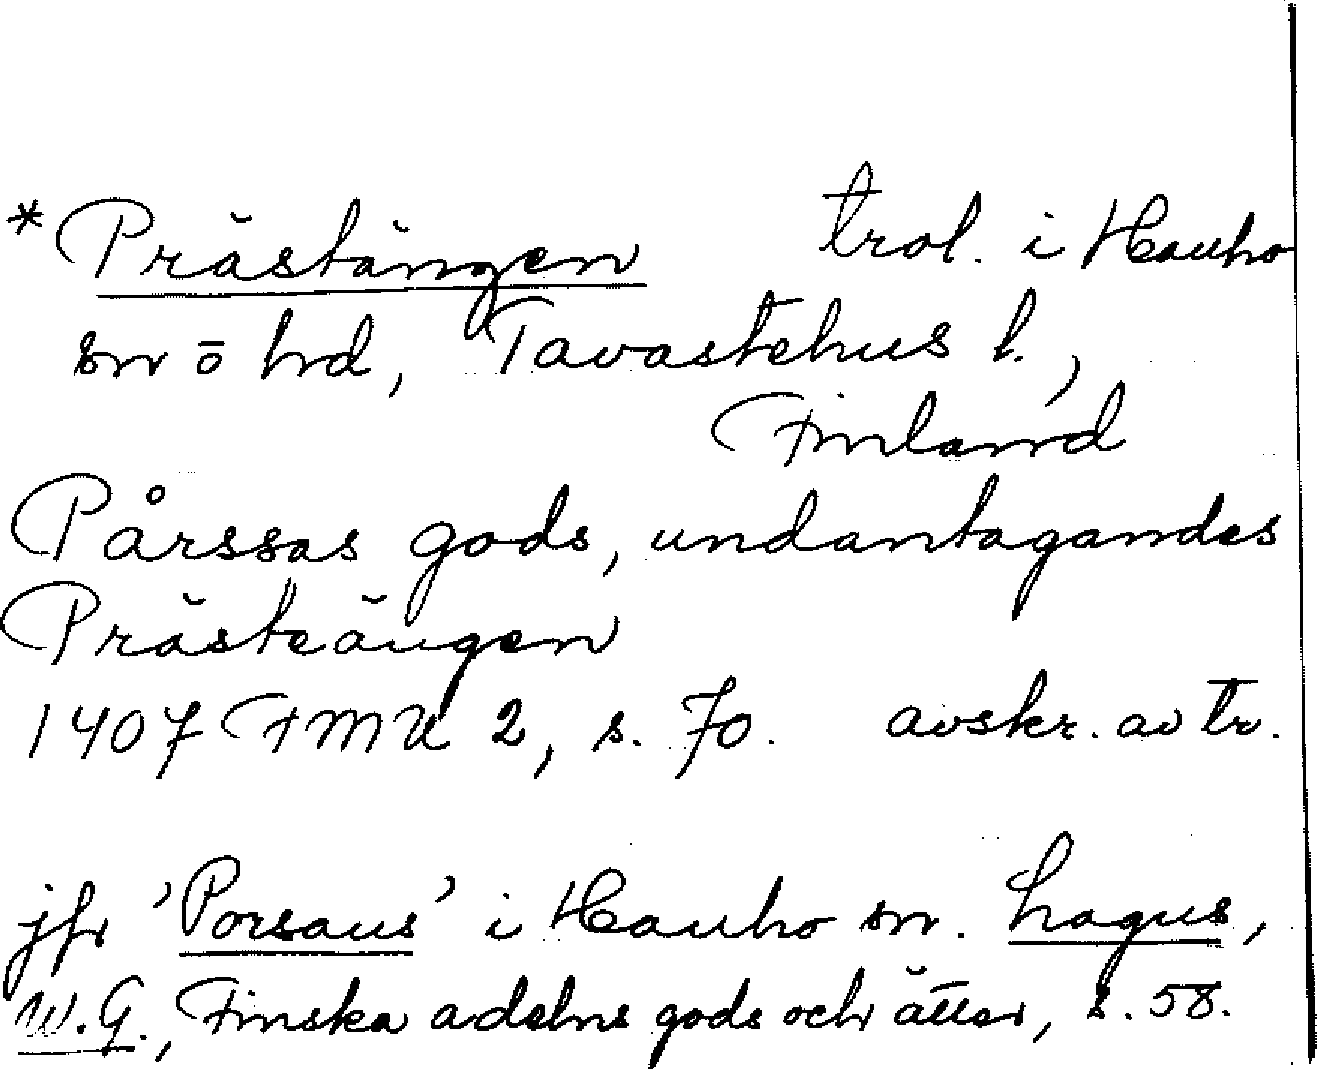 *Prästängen trol. i Hauho
sn o hd, Tavastehus l.,
Finland
Pårssas gods, undantagandes
Prästeängen
1407 FMU 2, s. 70. avskr. av tr.
jfr 'Porsaus' i Hauho sn. Lagus,
W.G., Finska adelns gods och ätter, s. 58.